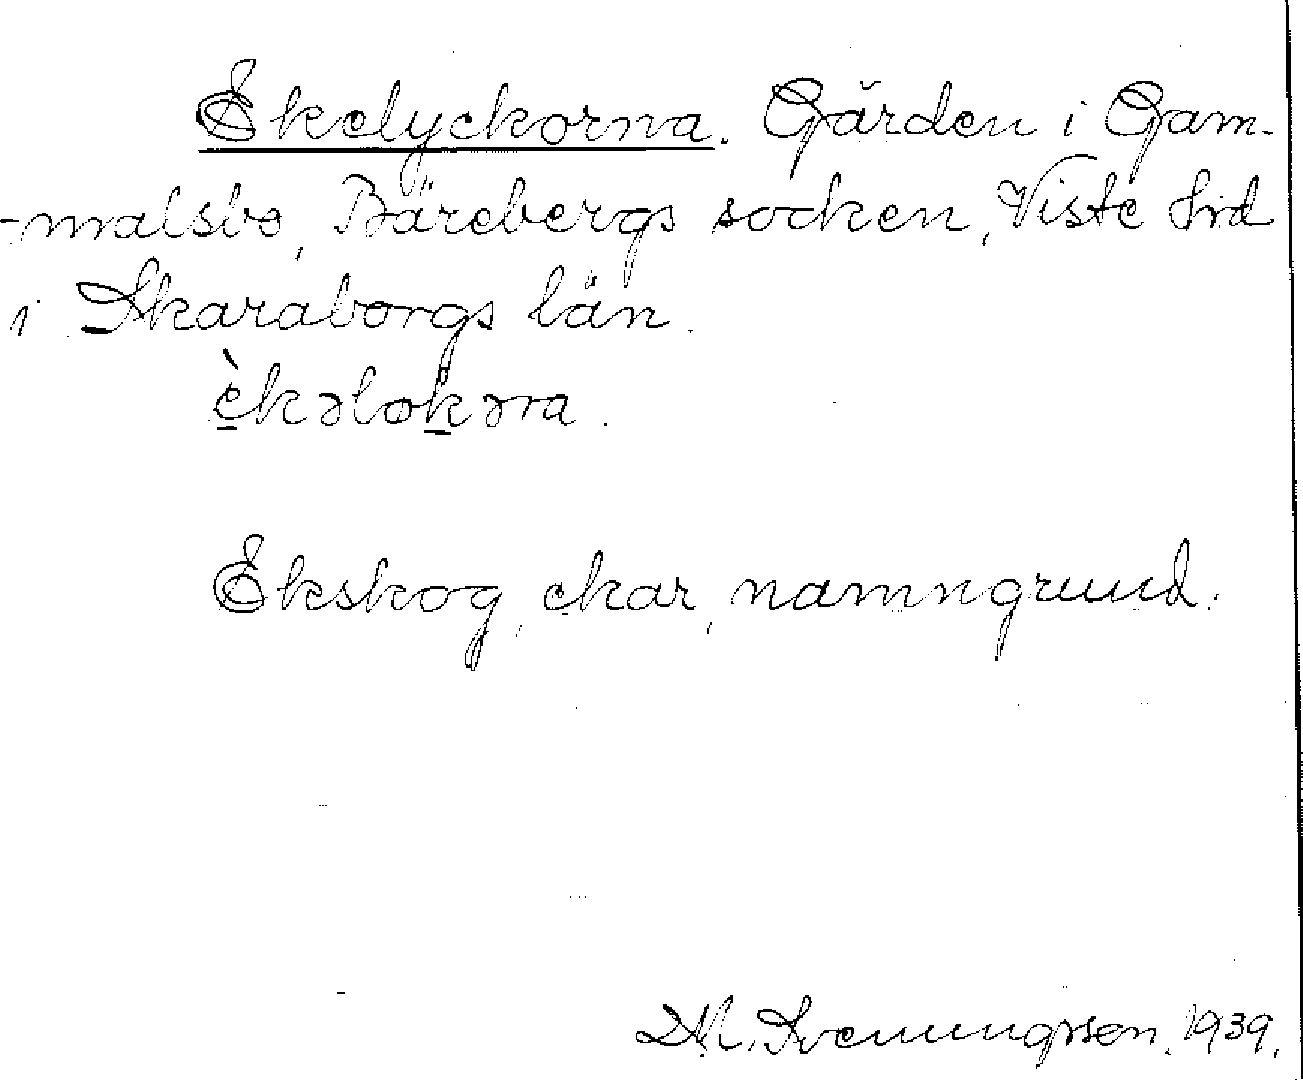 Ekelyckorna. Gärden i Gam-
-malsbo, Bärebergs socken, Viste hd
i Skaraborgs län.
èkəlokəra.
Ekskog, ekar, namngrund.
D.M. Svenungsson. 1939.